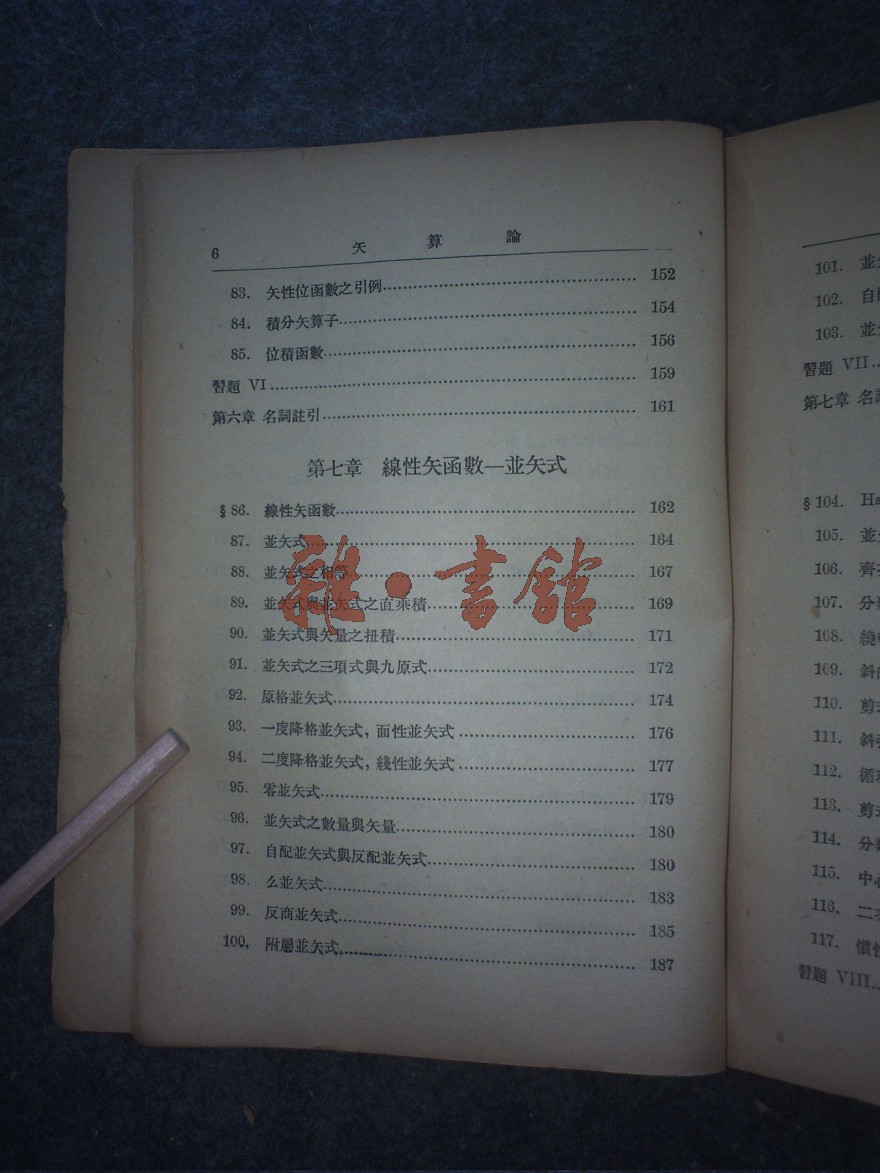 6 矢算論
83. 矢性位函數之引例 152
84. 積分矢算子 154
85. 位積函數 156
習題 VI 159
第六章 名詞註引 161
第七章 線性矢函數—並矢式
§86. 線性矢函數 162
87. 並矢式 164
88. 並矢式之相等 167
89. 並矢式與並矢式之直乘積 169
90. 並矢式與矢量之扭積 171
91. 並矢式之三項式與九原式 172
92. 原格並矢式 174
93. 一度降格並矢式,面性並矢式 176
94. 二度降格並矢式,綫性並矢式 177
95. 零並矢式 179
96. 並矢式之數量與矢量 180
97. 自配並矢式與反配並矢式 180
98. 么並矢式 183
99. 反商並矢式 185
100. 附屬並矢式 187
雜·書館
101. 並
102. 自
103. 並
習題 VII
第七章 名
§104. Ha
105. 並
106. 齊
107. 分
108. 繞
109. 斜
110. 剪
111. 斜
112. 循
113. 剪
114. 分
115. 中
116. 二
117. 慣
習題 VIII